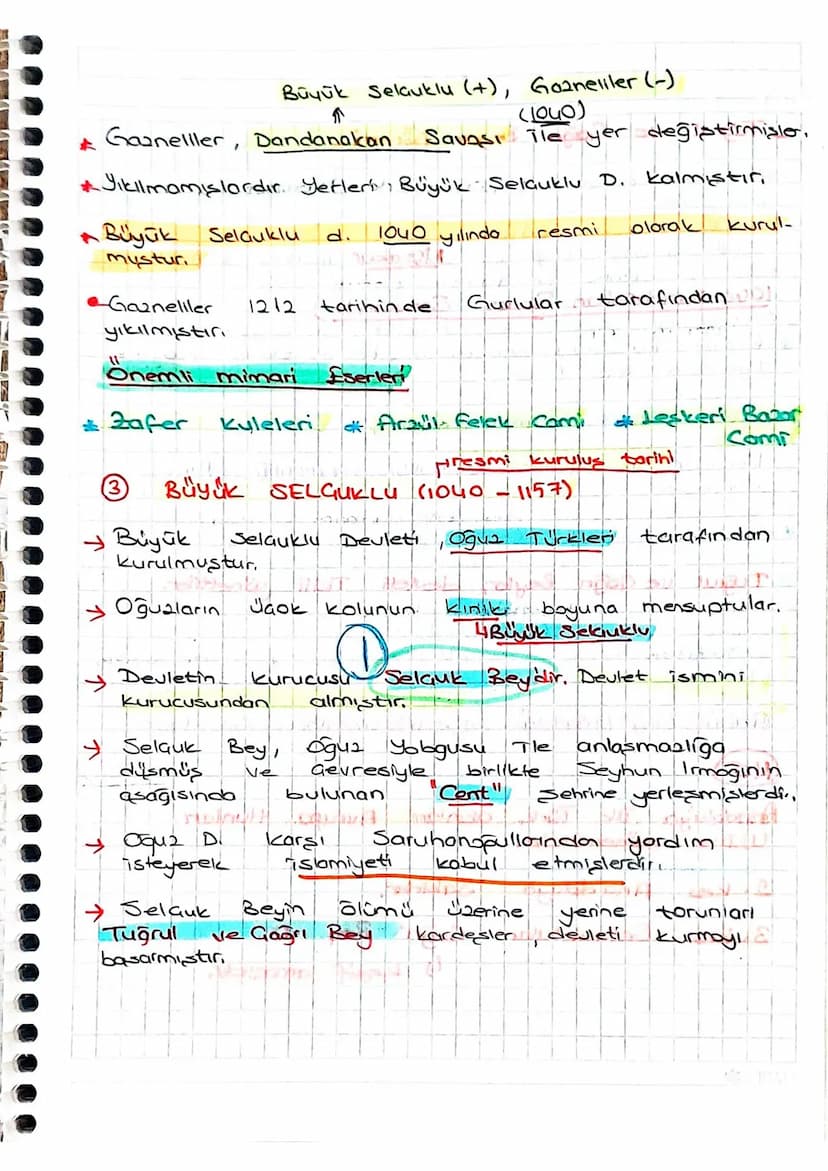 Büyük Selçuklu (+), Gazneliler (-)
(1040)
* Gazneliler, Dandanakan Savaşı ile yer değiştirmişler.
* Yıkılmamışlardır. Yerleri, Büyük Selçuklu D. kalmıştır.
* Büyük Selçuklu d. 1040 yılında resmi olarak kurul-
muştur.
Gazneliler 1212 tarihinde Gurlular tarafından
yıkılmıştır.
Önemli mimari Eserleri
* Zafer Kuleleri * Arzül-Felek Cami * Leşkeri Bazar
Cami
→ resmi kuruluş tarihi
③ BÜYÜK SELÇUKLU (1040 - 1157)
→ Büyük Selçuklu Devleti, Oğuz Türkleri tarafından
kurulmuştur.
→ Oğuzların Üçok kolunun Kınık boyuna mensuptular.
↳ Büyük Selçuklu
1
→ Devletin kurucusu Selçuk Bey'dir. Devlet ismini
kurucusundan almıştır.
→ Selçuk Bey, Oğuz Yabgusu ile anlaşmazlığa
düşmüş ve çevresiyle birlikte Seyhun Irmağının
aşağısında bulunan "Cent" şehrine yerleşmişlerdir.
→ Oğuz D. karşı Saruhanoğullarından yardım
isteyerek islamiyeti kabul etmişlerdir.
→ Selçuk Beyin ölümü üzerine yerine torunları
Tuğrul ve Çağrı Bey kardeşler, devleti kurmayı
başarmıştır.